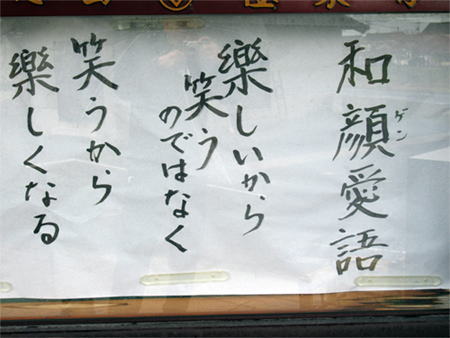 和顔愛語
ゲン
樂しいから
笑う
のではなく
笑うから
樂しくなる